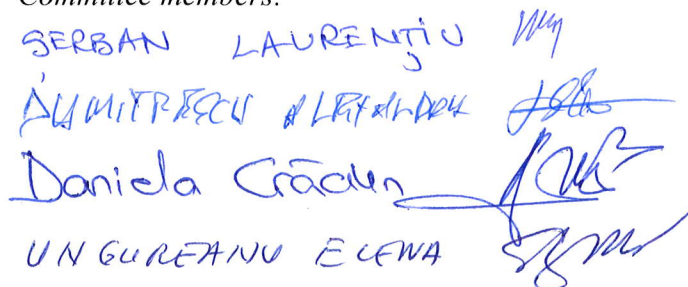 Committee members:
SERBAN LAURENȚIU
DUMITRESCU ALEXANDRU
Daniela Crăciun
UNGUREANU ELENA